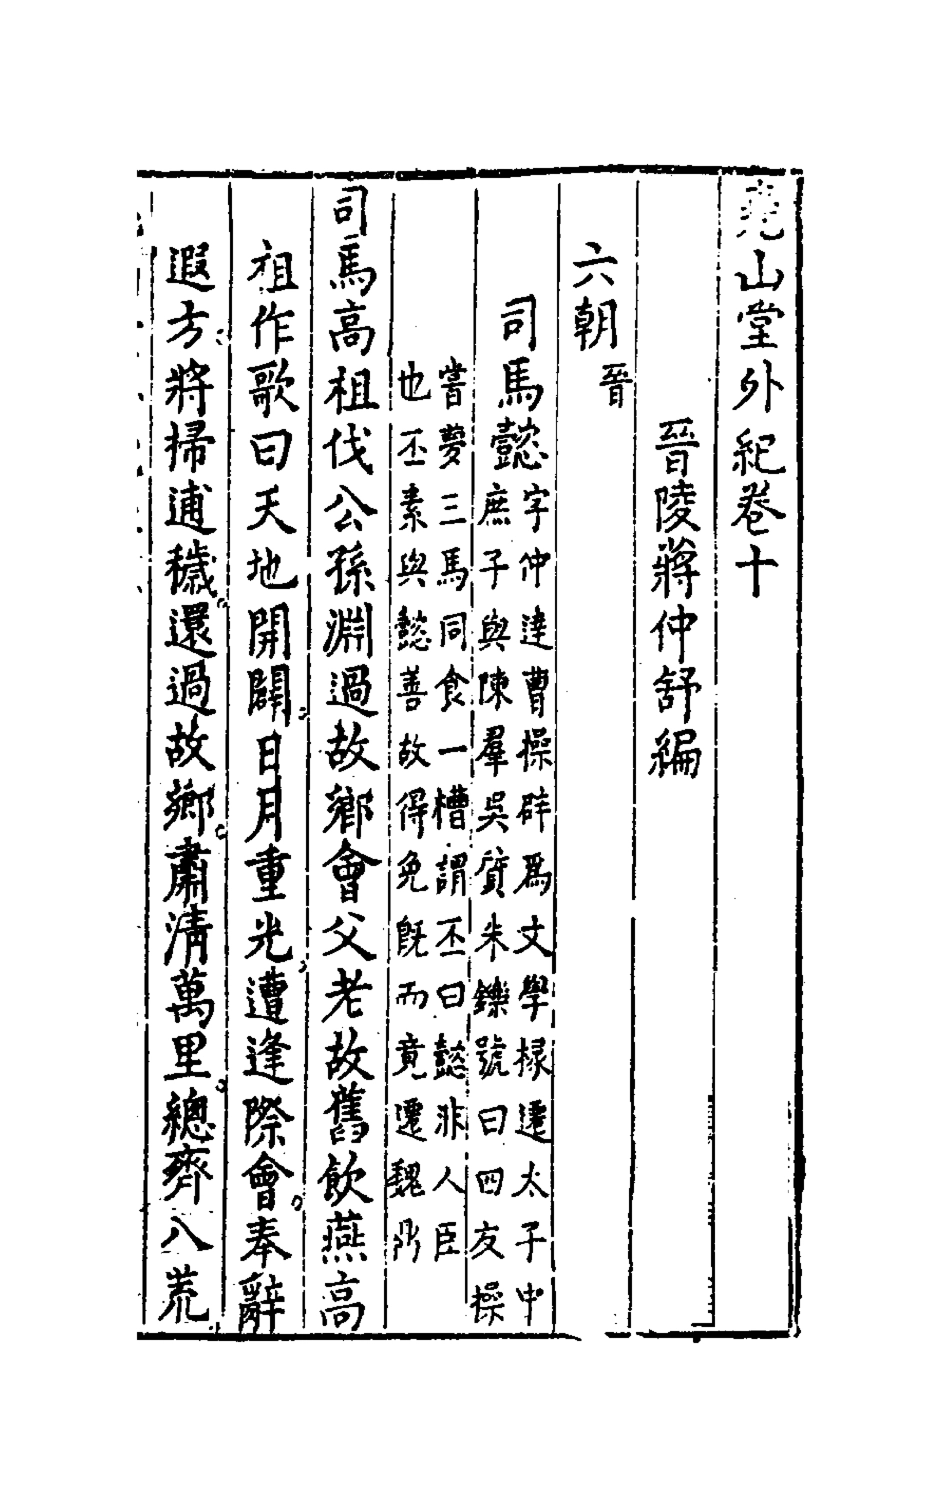 堯山堂外紀卷十
晉陵蔣仲舒編
六朝 晉
司馬懿 字仲達曹操辟爲文學掾遷太子中
庶子與陳羣吳質朱鑠號曰四友操
嘗夢三馬同食一槽謂丕曰懿非人臣
也丕素與懿善故得免旣而竟遷魏鼎
司馬高祖伐公孫淵過故鄉會父老故舊飲燕高
祖作歌曰天地開闢日月重光遭逢際會奉辭
遐方將掃逋穢還過故鄉肅清萬里總齊八荒